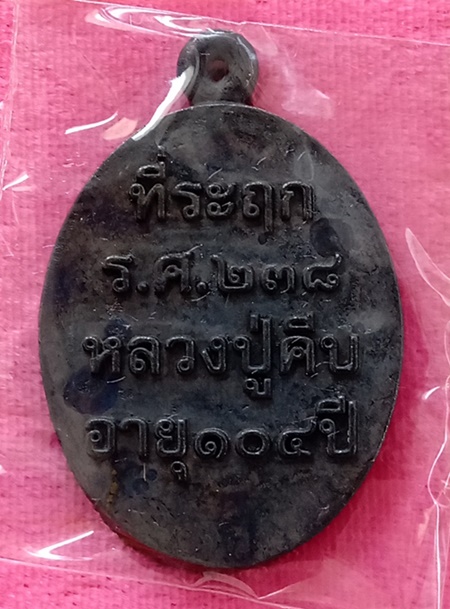 ที่ระฤก
ร.ศ.๒๓๘
หลวงปู่คีบ
อายุ๑๐๔ปี